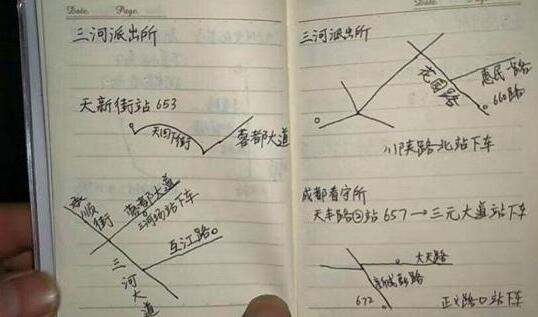 Date. Page.
三河派出所
天新街站 653
天回下街
蓉都大道
顺街
蓉都大道
三河场站下车
互江路
三河大道
Date. Page.
三河派出所
花园路
惠民路
660路
川陕路北站下车
成都看守所
天丰路口站 657→三元大道站下车
大天路
新成彭路
672
正义路口站下车